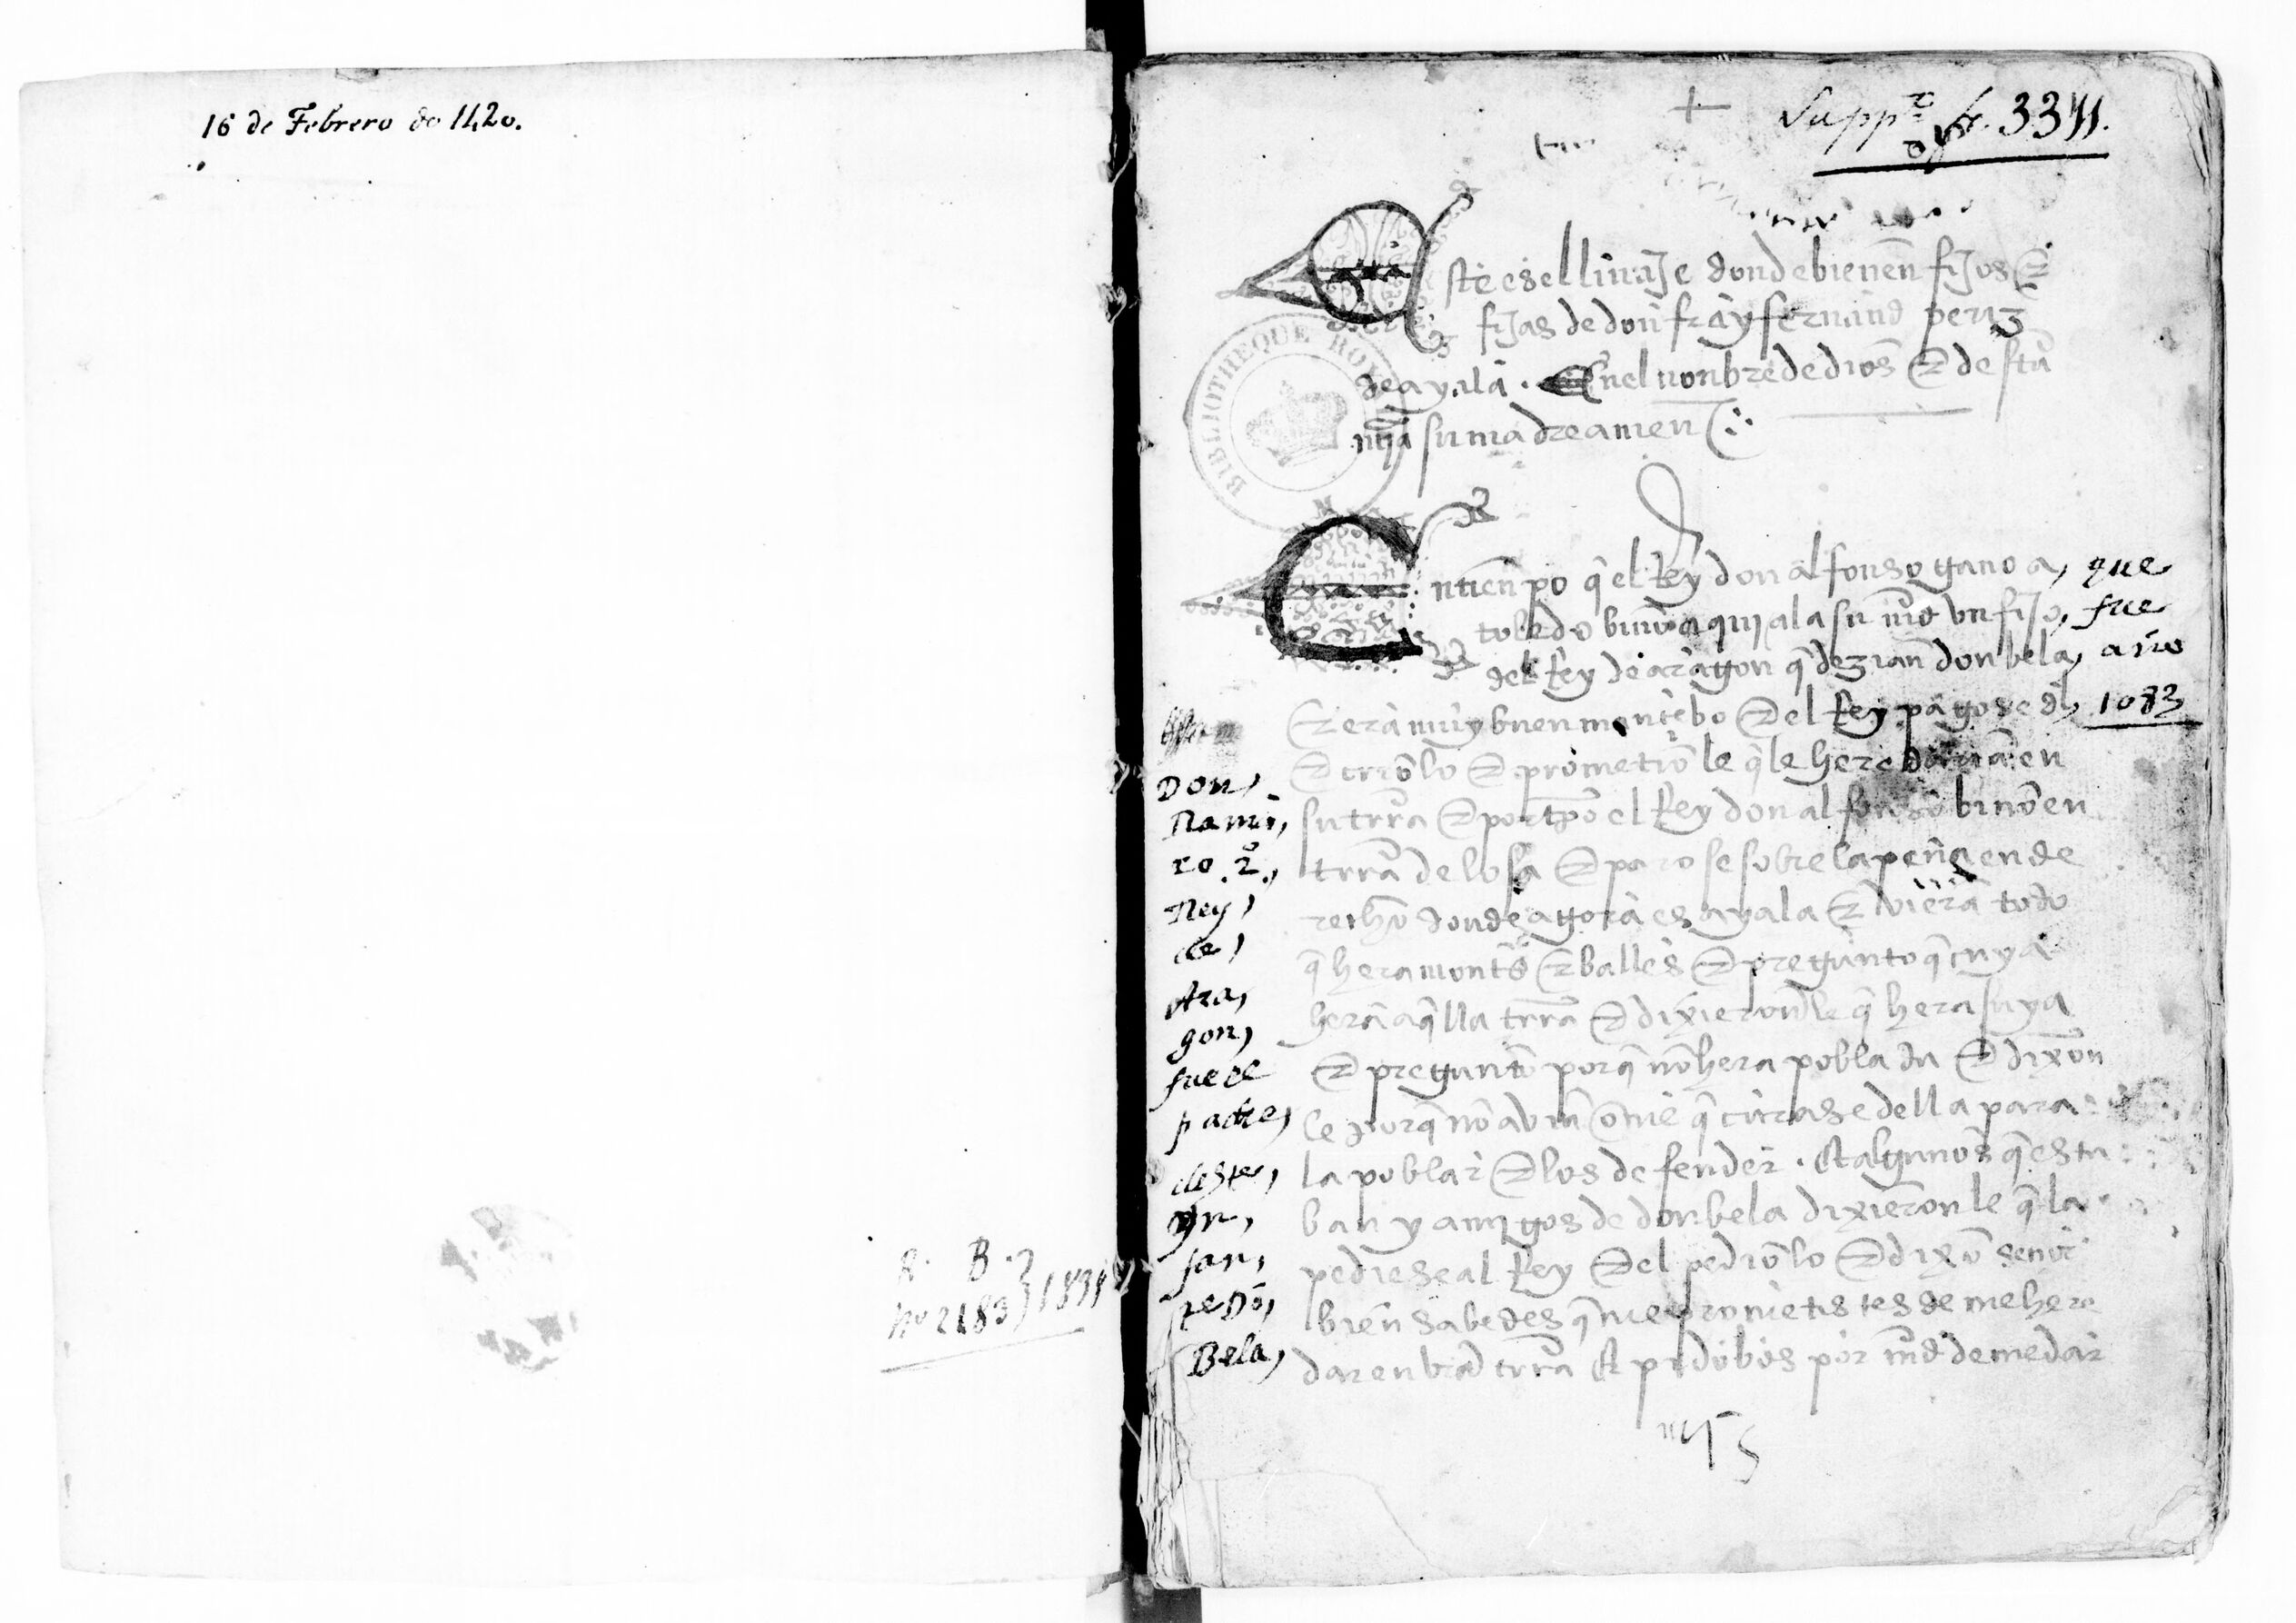 16 de Febrero de 1420.
R. B.
nº 2183 } 1839
+
Supp.t fr. 3355.
Este es el linaje donde bienen fijos E
fijas de don fray fernand perez
de ayala. En el nonbre de dios E de sta
mja su madre amen
BIBLIOTHEQUE ROYALE
En tienpo q̃ el Rey don alfonso gano a
toledo bino aqui a la su mrd vn fijo
del Rey de aragon q̃ dezian don bela
E era muy buen mancebo E el Rey pagose dl
E criolo E prometiole q̃ le heredaria en
su trra E por tpo el Rey don alfonso bino en
trra de losa E parose sobre la peña en de
recho donde agora es ayala E viera todo
q̃ hera montes E balles E pregunto q̃ cuya
hera aq̃lla trra E dixieronle q̃ hera suya
E pregunto porq̃ no hera poblada E dixon
le porq̃ no abia ome q̃ curase della para
la poblar E los defender. A algunos q̃ esta
ban y amigos de don bela dixieronle q̃ la
pediese al Rey E el pediolo E dixo senor
bien sabedes q̃ me prometistes de me here
dar en vra trra E pidobos por mrd de me dar
que
fue
año
1083
Don,
Rami,
ro .2º,
Rey,
de,
Ara,
gon,
fue el
padre,
deste,
yn,
fan,
te Dõ,
Bela,